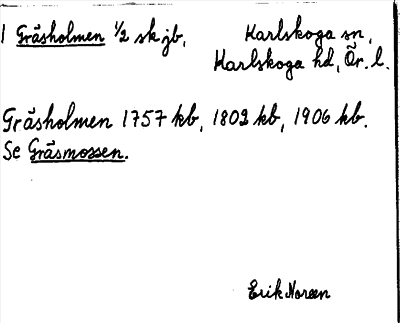 1 Gräsholmen 1/2 sk jb, Karlskoga sn,
Karlskoga hd, Ör. l.
Gräsholmen 1757 kb, 1802 kb, 1906 kb.
Se Gräsmossen.
Erik Noreen